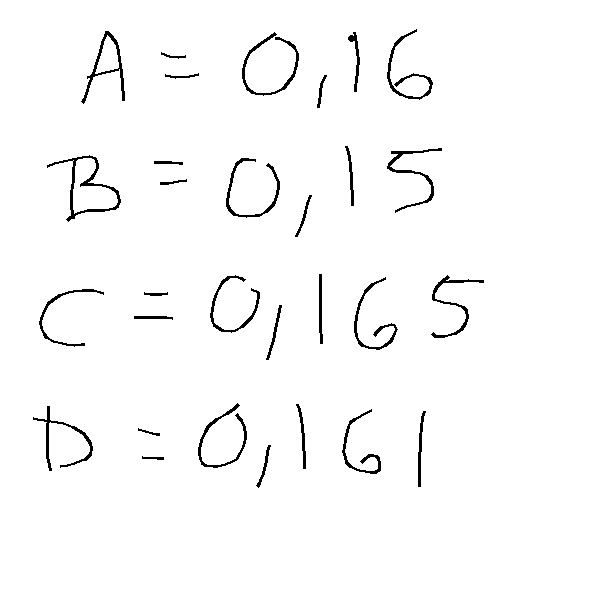 A = 0,16
B = 0,15
C = 0,165
D = 0,161